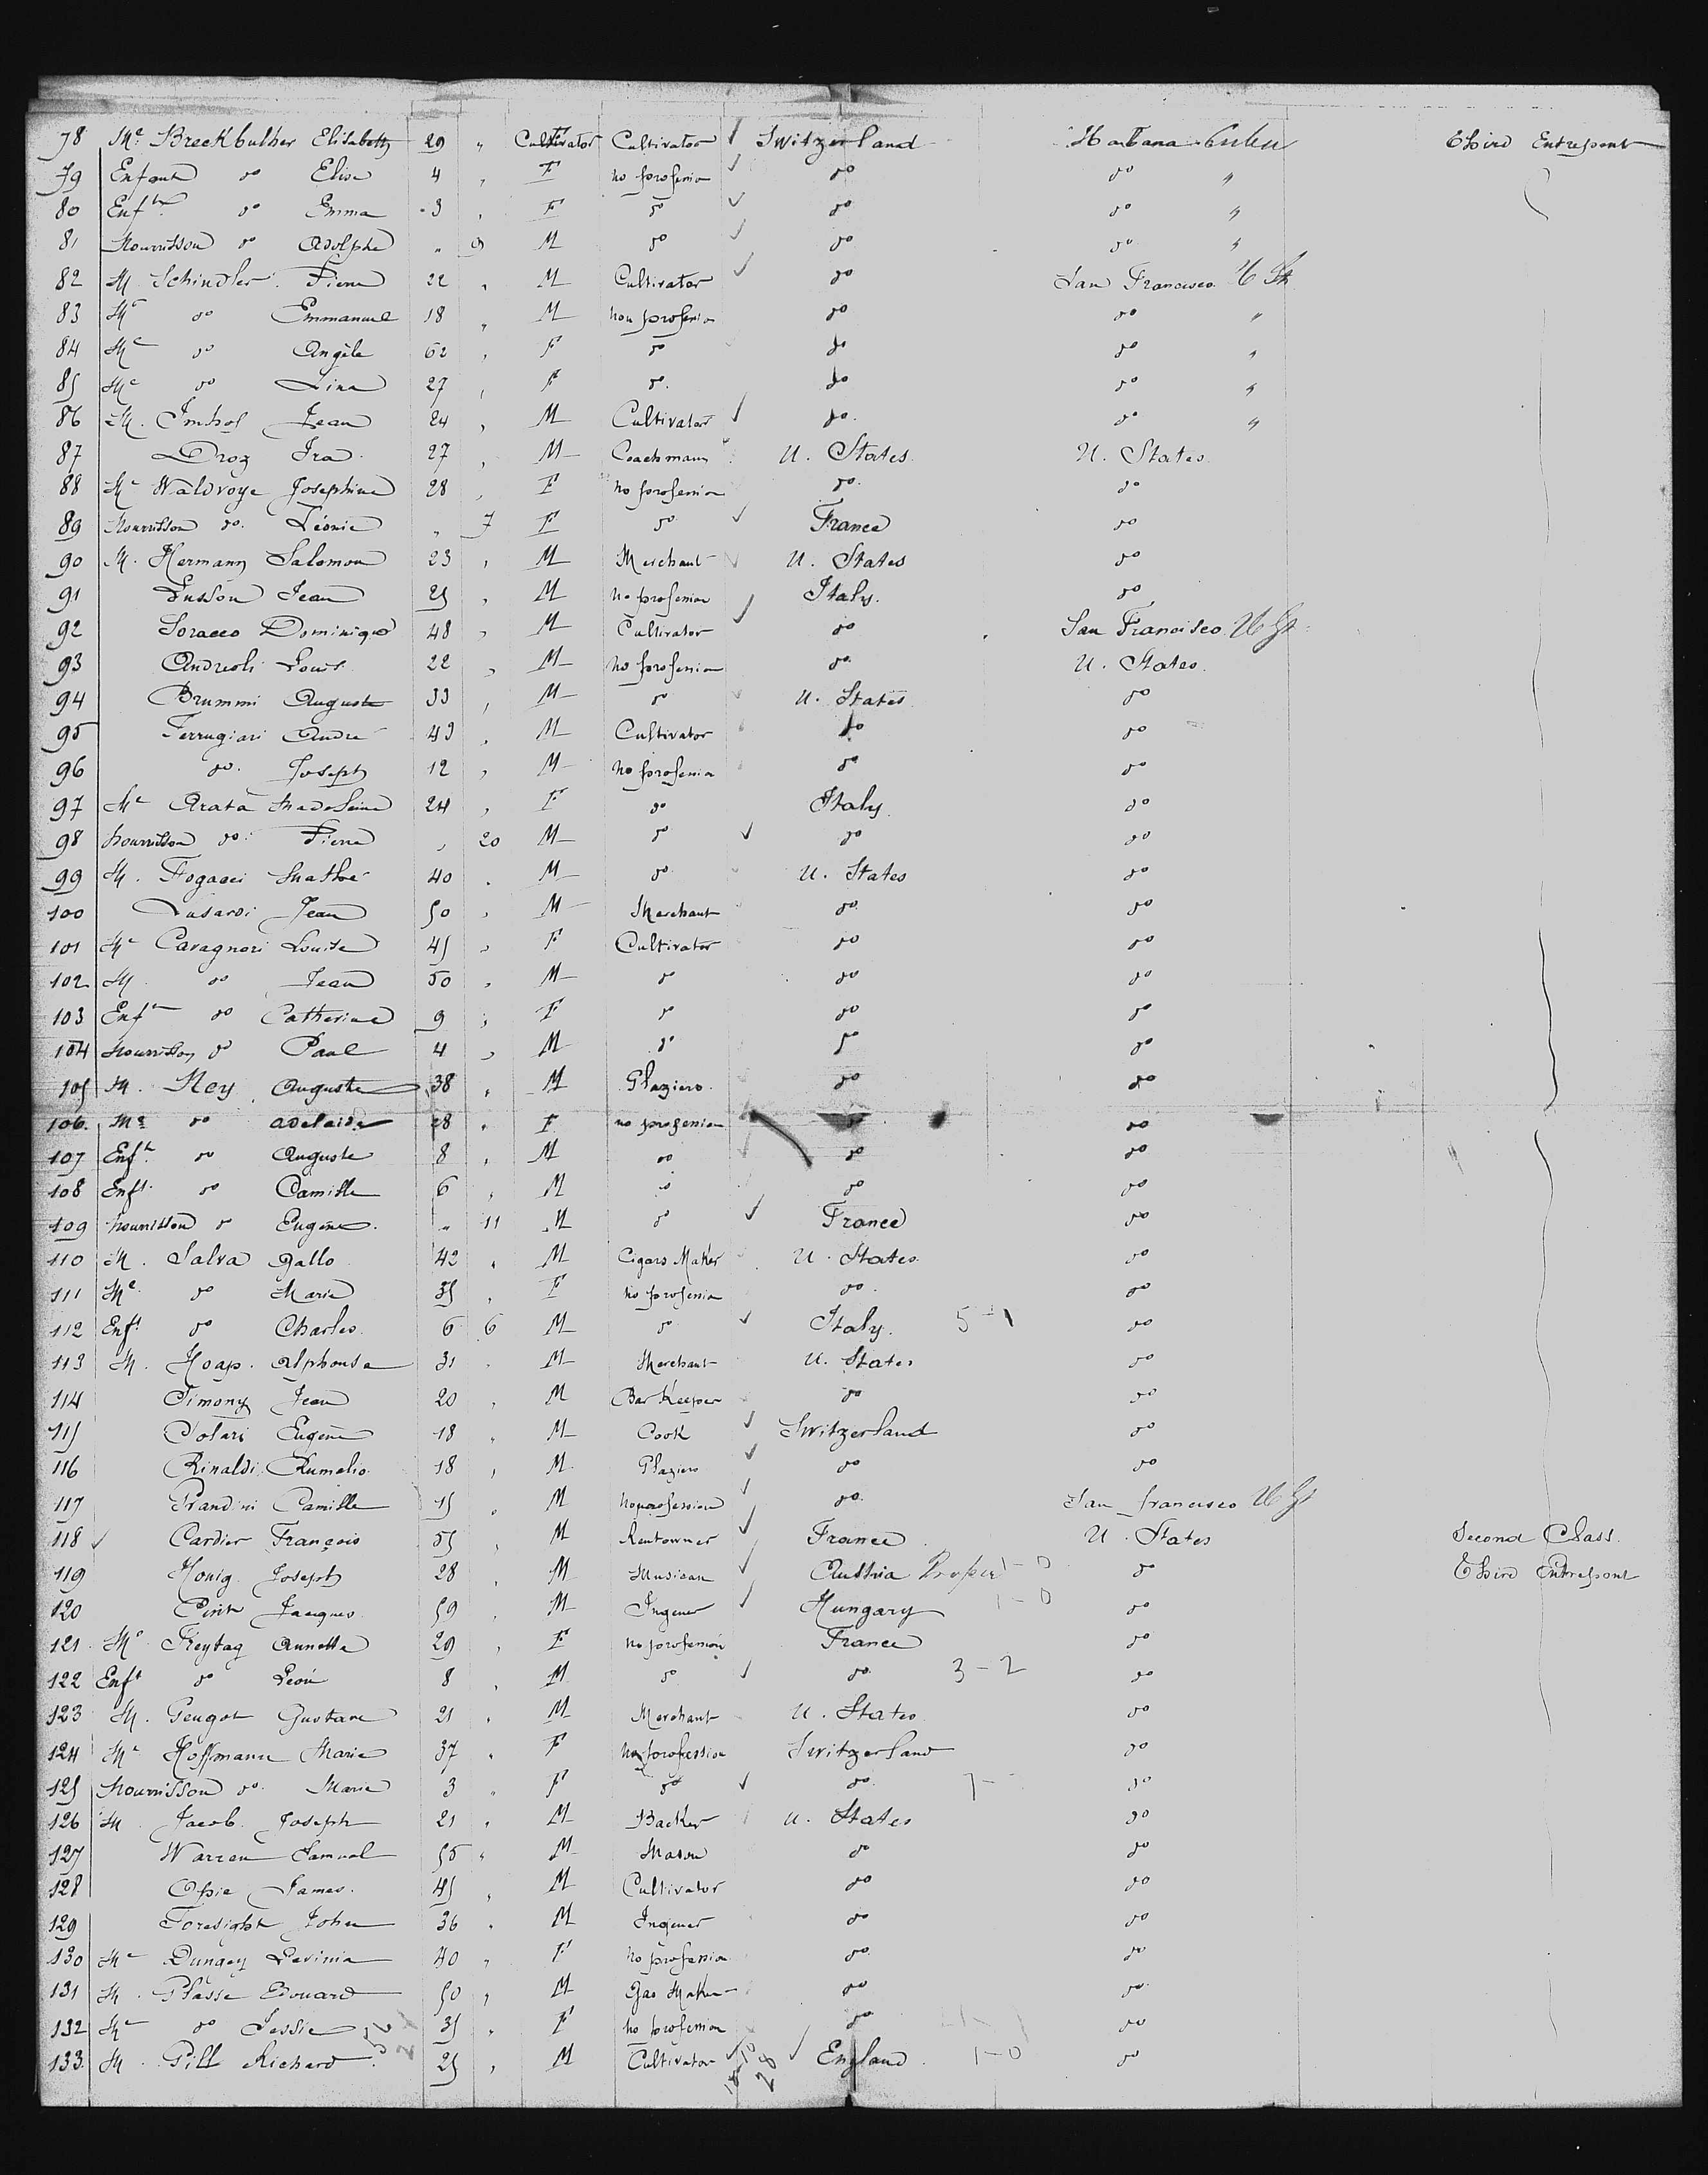 78 Me Breckbulher Elisabeth 29 " Cultivator F Cultivator ✓ Switzerland Habana Cuba Third Entrepont
79 Enfant do Elise 4 " F no profession ✓ do do "
80 Enft do Emma 3 " F do ✓ do do "
81 Nourrisson do Adolphe " 9 M do ✓ do do "
82 M. Schindler Pierre 22 " M Cultivator ✓ do San Francisco U St
83 Me do Emmanuel 18 " M non profession do do "
84 Me do Angèle 62 " F do do do "
85 Me do Lina 27 " F do. do do "
86 M. Imhof Jean 24 " M Cultivator ✓ do. do "
87 Droz Ira 27 " M Coachmann U. States U. States
88 Me Waldvoye Josephine 28 " F no profession do. do
89 Nourrisson do. Léonie " 7 F do ✓ France do
90 M. Hermann Salomon 23 " M Merchant U. States do
91 Lusson Jean 25 " M no profession Italy. do
92 Soracco Dominique 48 " M Cultivator ✓ do San Francisco U St
93 Andreoli Louis 22 " M no profession do. U. States
94 Brummi Auguste 33 " M do U. States do
95 Ferrugiari André 43 " M Cultivator do do
96 do. Joseph 12 " M no profession do do
97 Me Arata Madeleine 24 " F do Italy do
98 nourrisson do. Pierre " 20 M do ✓ do do
99 M. Fogacci Mathé 40 " M do U. States do
100 Lusardi Jean 50 " M Merchant do. do
101 Me Cavagnori Louise 45 " F Cultivator do do
102 M do Jean 50 " M do do do
103 Enft do Catherine 9 " F do do do
104 nourrisson do Paul 4 " M do do do
105 M. Ney Auguste 38 " M Glaziers do do
106 Me do Adelaide 28 " F no profession do do
107 Enft do Auguste 8 " M do do do
108 Enft do Camille 6 " M do do do
109 nourrisson do Eugène. " 11 M do ✓ France do
110 M. Salva Gallo 42 " M Cigars Maker U. States do
111 Me do Marie 35 " F no profession do. do
112 Enft do Charles 6 6 M do ✓ Italy. 5-1 do
113 M. Hoap. Alphonse 31 " M Merchant U. States do
114 Simony Jean 20 " M Bar Keeper do do
115 Tolari Eugène 18 " M Cook ✓ Switzerland do
116 Rinaldi Rumelio 18 " M Glaziers ✓ do do
117 Prandini Camille 15 " M no profession ✓ do. San francisco U St
118 ✓ Cardier François 55 " M Rentowner ✓ France U. States Second Class
119 Honig Joseph 28 " M Musican ✓ Austria Proper 1-0 do Third Entrepont
120 Pink Jacques 59 " M Ingener ✓ Hungary 1-0 do
121 Me Freytag Annette 29 " F no profession France do
122 Enft do Léon 8 " M do ✓ do 3-2 do
123 M. Peugot Gustave 21 " M Merchant U. States do
124 Me Hoffmann Marie 37 " F no profession Switzerland do
125 nourrisson do. Marie 3 " F do ✓ do. do
126 M Jacob Joseph 21 " M Backer U. States do
127 Warren Samuel 55 " M Mason do do
128 Opie James. 45 " M Cultivator do do
129 Foresight John 36 " M Ingener do do
130 Me Dungey Levinia 40 " F no profession do do
131 M. Plasse Edouard 50 " M Gas Maker do do
132 Me do Jessie 35 " F no profession do do
133 M. Pill Richard 25 " M Cultivator ✓ ✓ England 1-0 do